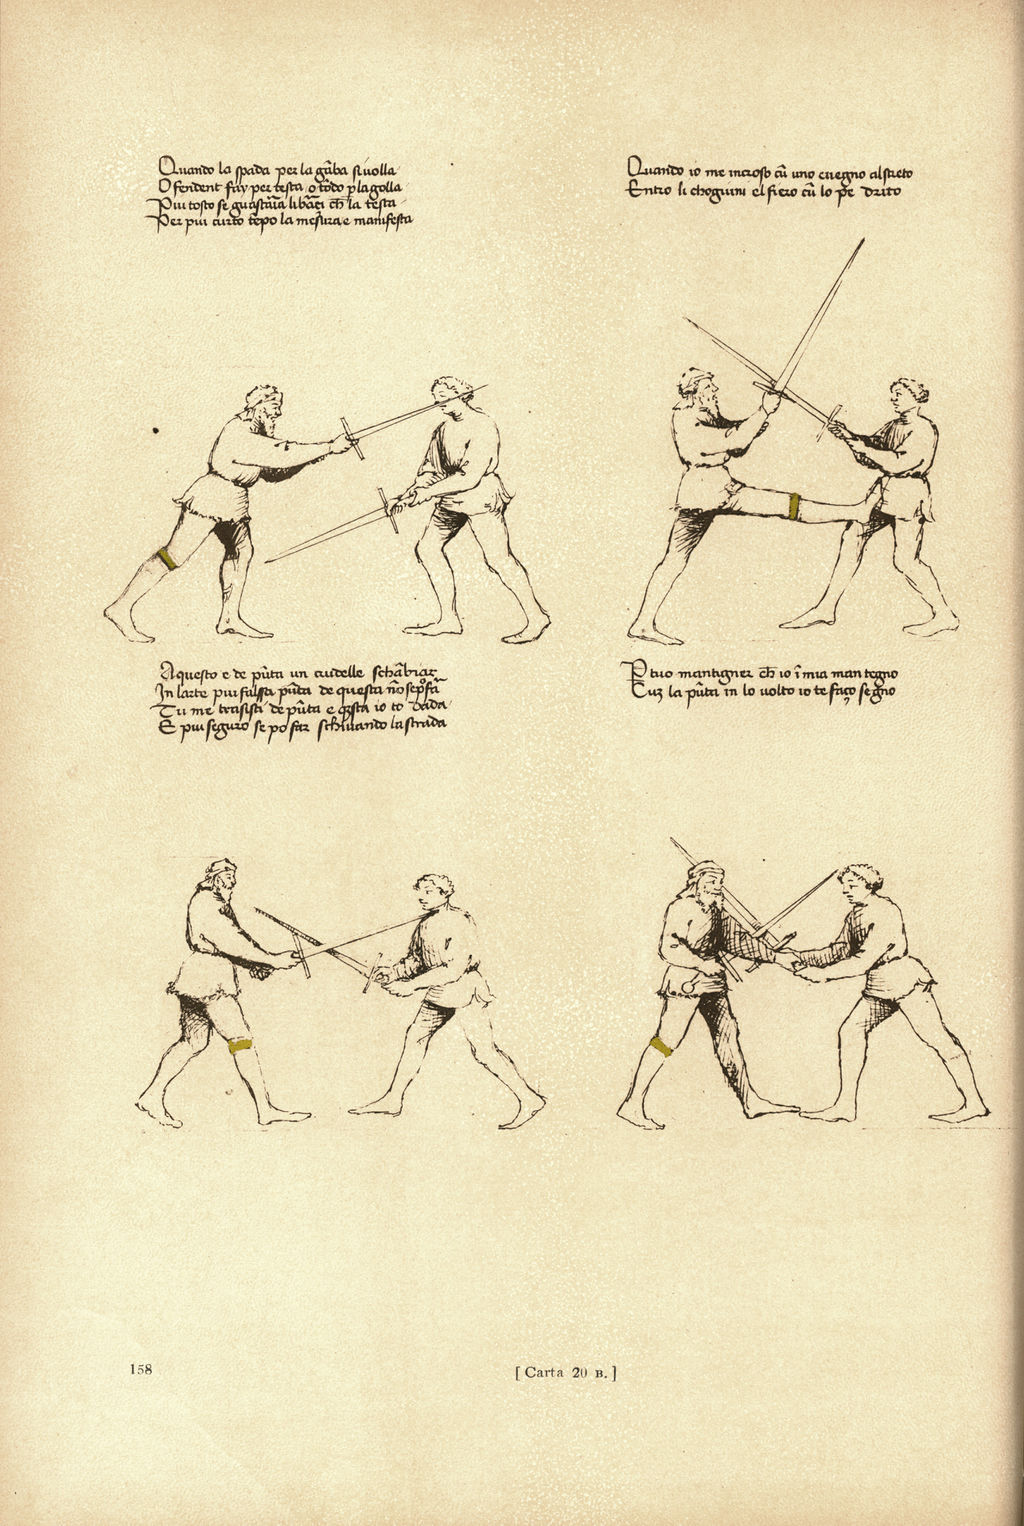 Quando la spada per la gãba si uolla
O fendent fazy per testa o tõdo p la golla
Piu tosto se guastaria li brãci ch̃ la testa
Per piu curto tẽpo la mesura e manifesta
Quando io me incroso cũ uno e uegno al streto
Entro li choguini el fiero cũ lo pe drito
Aquesto e de pũta un crudelle schãbiar
In larte piu falssa pũta de questa nõ se po far
Tu me trasisti de pũta e qsta io to dada
E piu seguro se po far schiuando la strada
P tuo mantigner ch̃ io ĩ mia man tegno
Cuz la pũta in lo uolto io te faço segno
158
[ Carta 20 B. ]